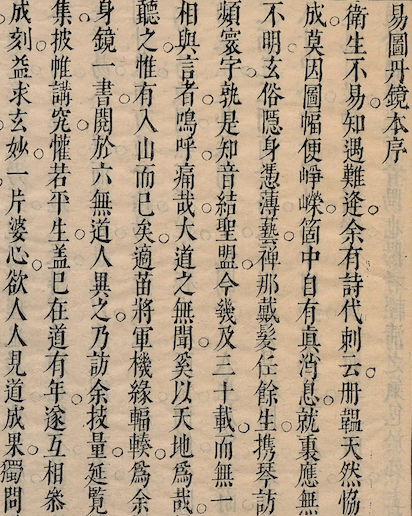 易圖丹鏡本序
衛生不易知遇難逢。余有詩代刺云。册韞天然恊
成莫因圖幅便崢嶸。箇中自有眞消息。就裏應無
不明。玄俗隱身憑溥藝。禆那戴髮任餘生。携琴訪
頻寰宇。孰是知音結聖盟。今幾及三十載。而無一
相與言者。嗚呼痛哉。大道之無聞。奚以天地爲哉。
聽之。惟有入山而已矣。適苗將軍機緣輻輳。爲余
身鏡一書。閱於六無道人。異之。乃訪余技量。延覽
集披帷講究。懽若平生。盖已在道有年。遂互相叅
成刻。益求玄妙。一片婆心。欲人人見道成果。獨問